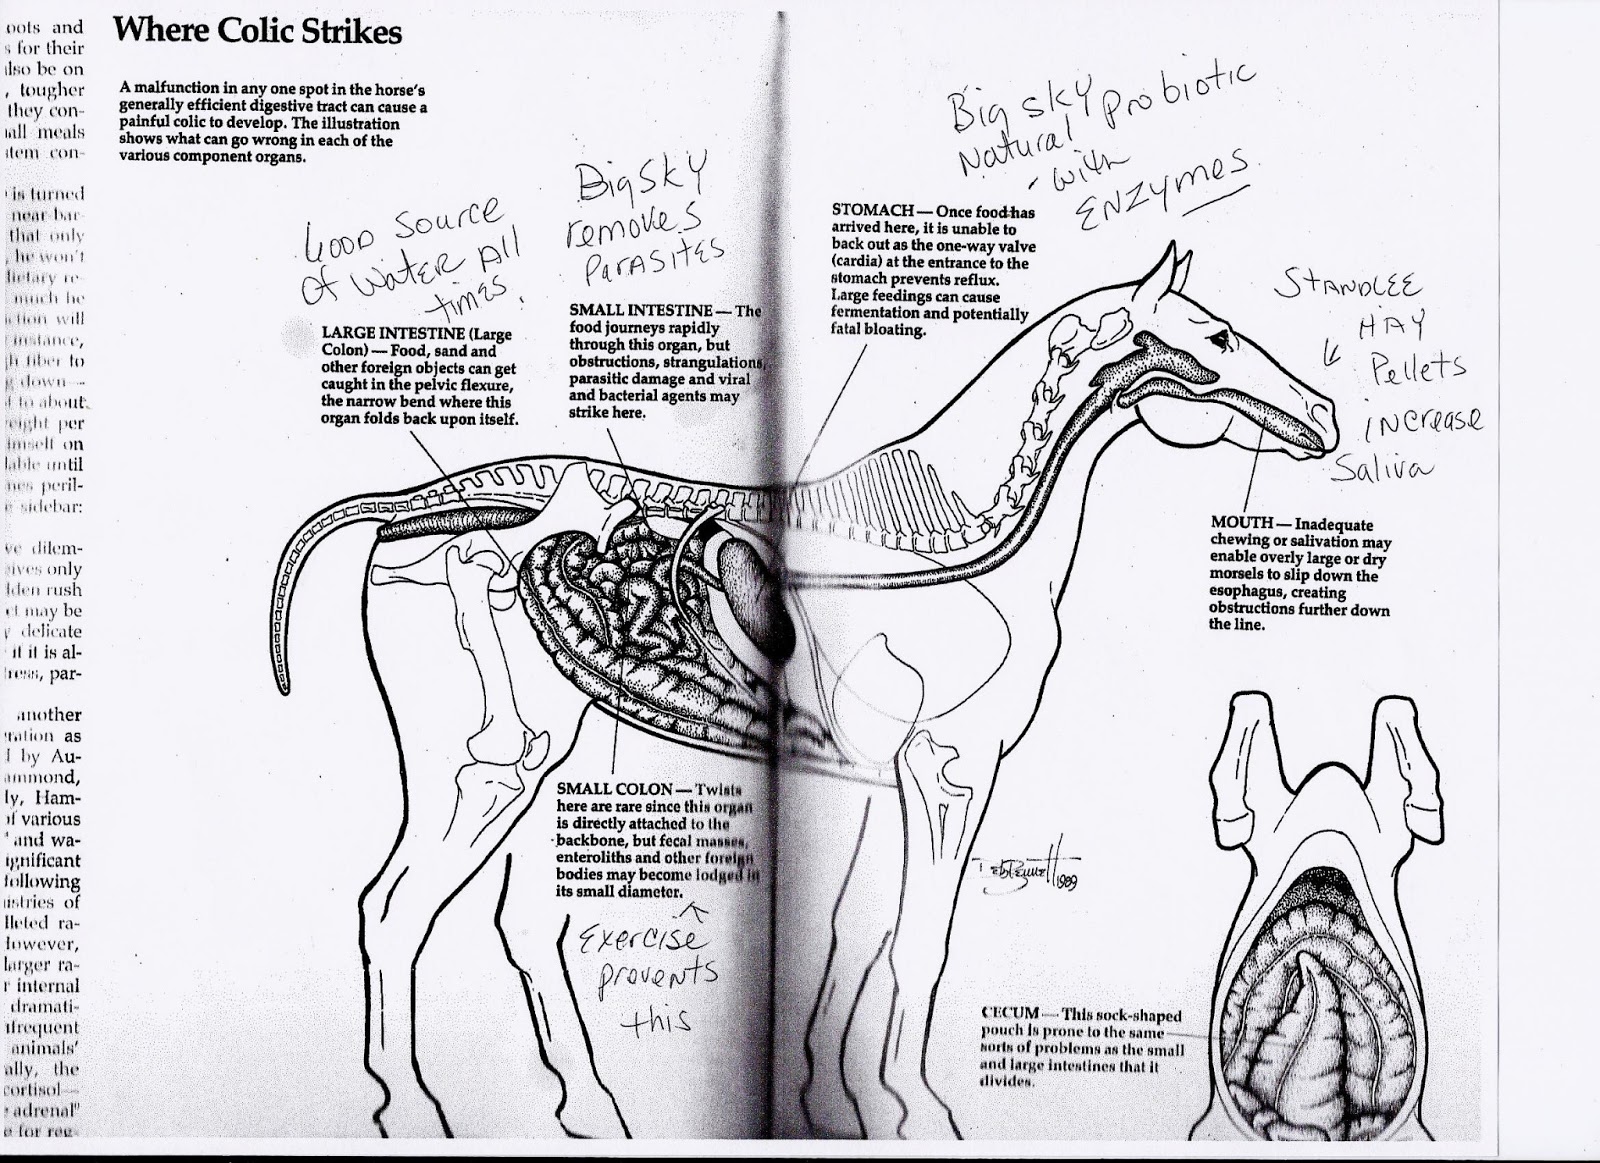 oots and
s for their
also be on
, tougher
they con-
all meals
stem con-
is turned
near bar-
that only
, he won't
dietary re-
much he
ction will
instance,
gh fiber to
g down —
d to about
eight per
imself on
lable until
mes peril-
e sidebar:
ve dilem-
gives only
dden rush
ct may be
y delicate
if it is al-
tress, par-
another
eration as
d by Au-
ammond,
ly, Ham-
of various
and wa-
ignificant
following
istries of
lleted ra-
However,
larger ra-
r internal
dramati-
frequent
animals'
ally, the
cortisol—
adrenal"
e for reg-
Where Colic Strikes
A malfunction in any one spot in the horse's
generally efficient digestive tract can cause a
painful colic to develop. The illustration
shows what can go wrong in each of the
various component organs.
Good Source
Of Water All
times.
LARGE INTESTINE (Large
Colon) — Food, sand and
other foreign objects can get
caught in the pelvic flexure,
the narrow bend where this
organ folds back upon itself.
Big Sky
removes
Parasites
SMALL INTESTINE — The
food journeys rapidly
through this organ, but
obstructions, strangulations,
parasitic damage and viral
and bacterial agents may
strike here.
Big sky probiotic
Natural
- with
ENZYMES
STOMACH — Once food has
arrived here, it is unable to
back out as the one-way valve
(cardia) at the entrance to the
stomach prevents reflux.
Large feedings can cause
fermentation and potentially
fatal bloating.
STANDLEE
HAY
Pellets
increase
Saliva
MOUTH — Inadequate
chewing or salivation may
enable overly large or dry
morsels to slip down the
esophagus, creating
obstructions further down
the line.
SMALL COLON — Twists
here are rare since this organ
is directly attached to the
backbone, but fecal masses,
enteroliths and other foreign
bodies may become lodged in
its small diameter.
Exercise
prevents
this
Deb Bennett 1989
CECUM — This sock-shaped
pouch is prone to the same
sorts of problems as the small
and large intestines that it
divides.